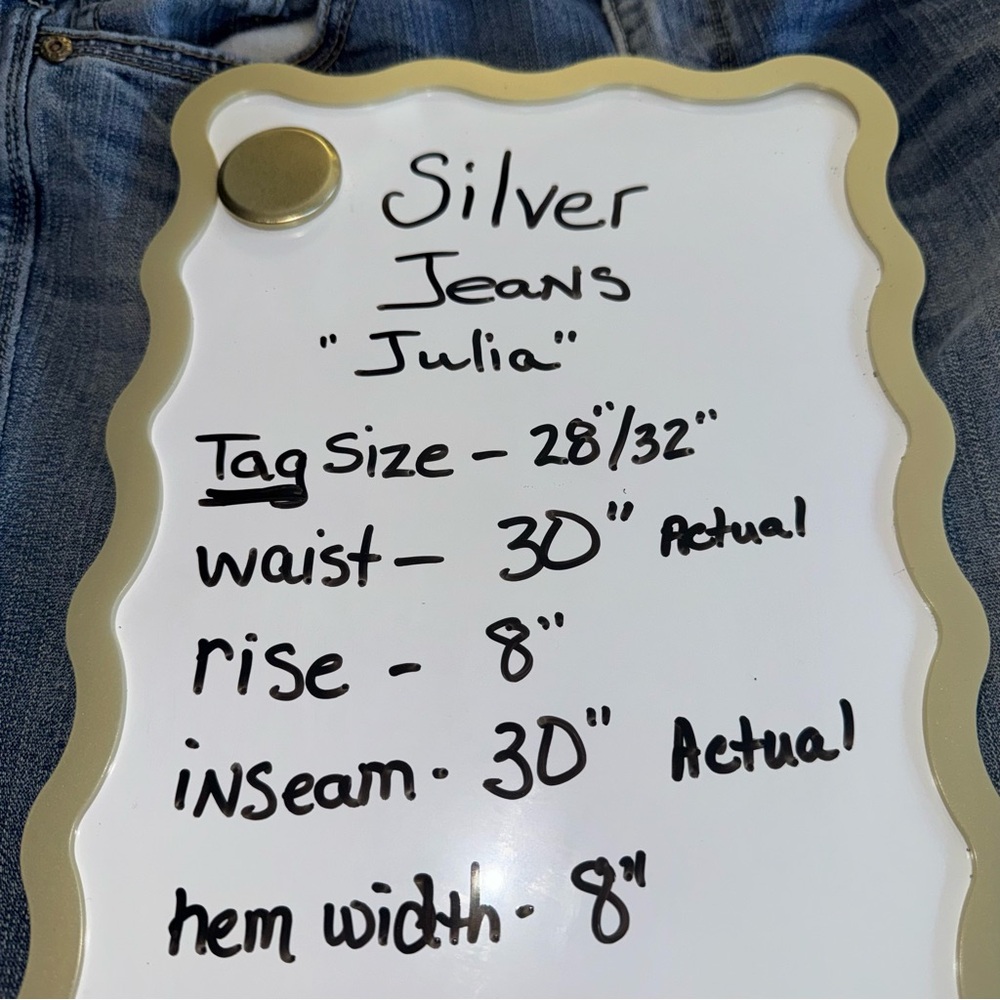 Silver
Jeans
"Julia"
Tag Size - 28"/32"
waist - 30" Actual
rise - 8"
inseam - 30" Actual
hem width - 8"